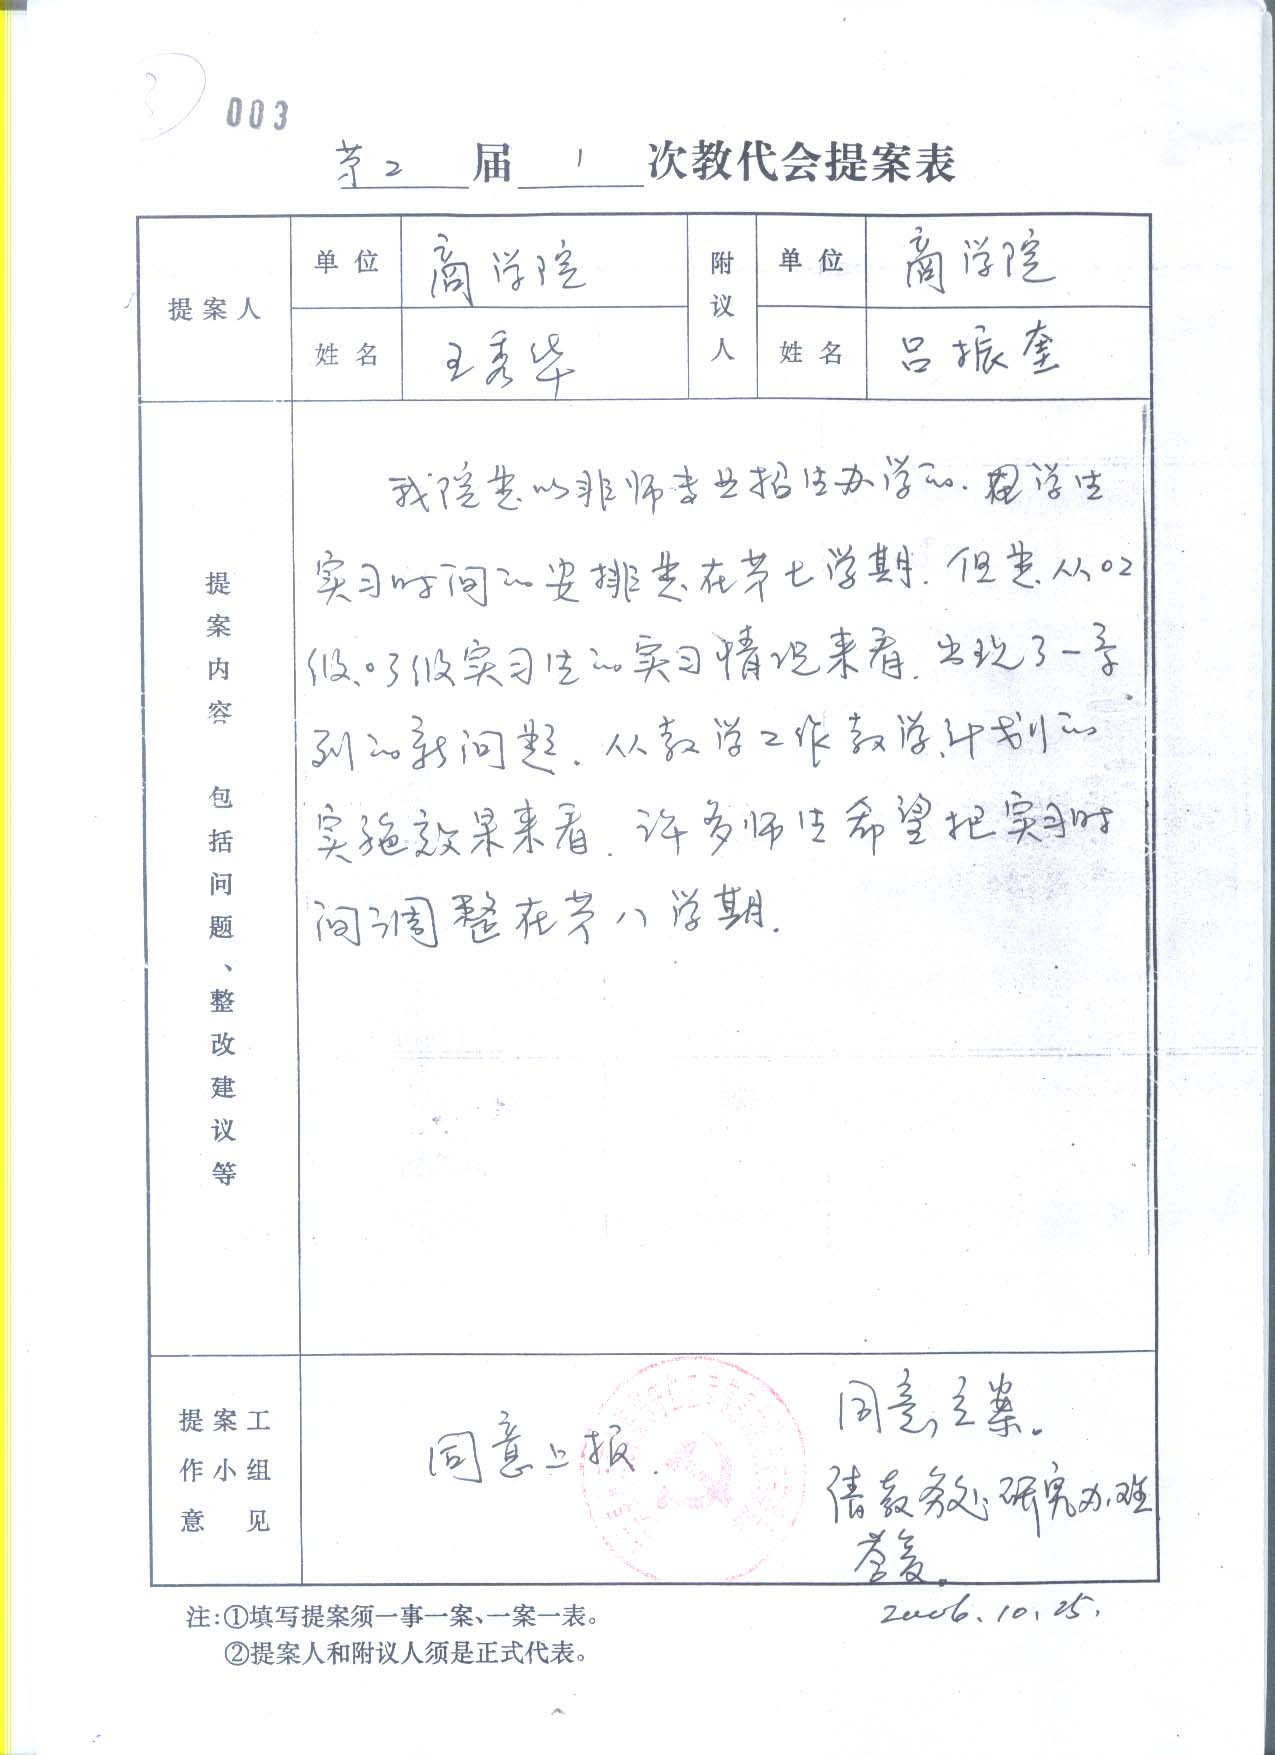 003
第2届1次教代会提案表
提案人
单位
商学院
附议人
单位
商学院
姓名
王秀华
姓名
吕振奎
提案内容 包括问题、整改建议等
我院是以非师专业招生办学的.在学生
实习时间的安排是在第七学期.但是从02
级、03级实习生的实习情况来看.出现了一系
列的新问题.从教学工作教学计划的
实施效果来看.许多师生希望把实习时
间调整在第八学期.
提案工
作小组
意见
同意上报.
同意立案。
请教务处研究办理
答复。
2006.10.25.
注:①填写提案须一事一案、一案一表。
②提案人和附议人须是正式代表。